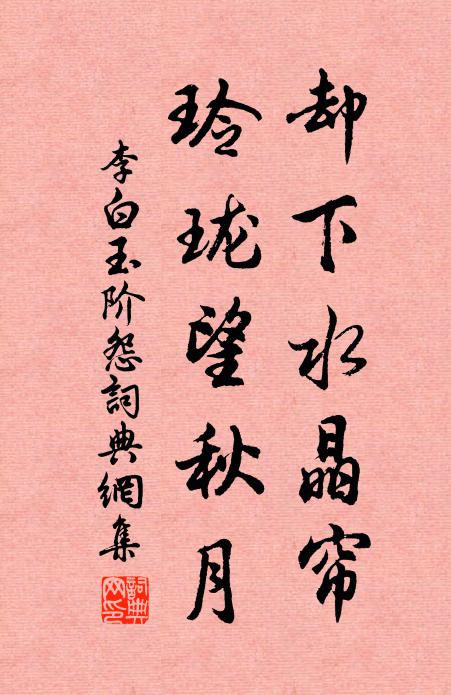 却下水晶帘
玲珑望秋月
李白玉阶怨詞典網集
詞典网印